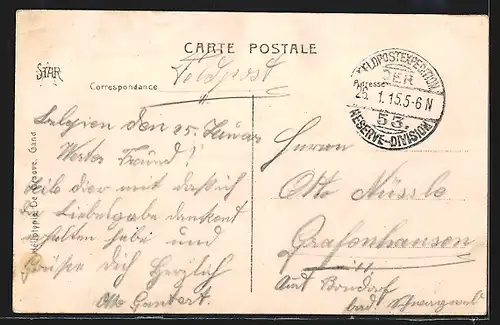 CARTE POSTALE
STAR
Feldpost
Correspondance
Adresse
FELDPOSTEXPEDITION
DER
25. 1.15.5-6 N
53
RESERVE-DIVISION
Belgien den 25. Januar
Werter Freund!
Teile dier mit daß ich
die Liebesgabe dankent
erhalten habe und
Grüße Dich Herzlich
Otto Gantert.
Herrn
Otto Nüssle
Grafenhausen
Amt Bondorf
bad. Schwarzwald
Héliotypie De Graeve, Gand.